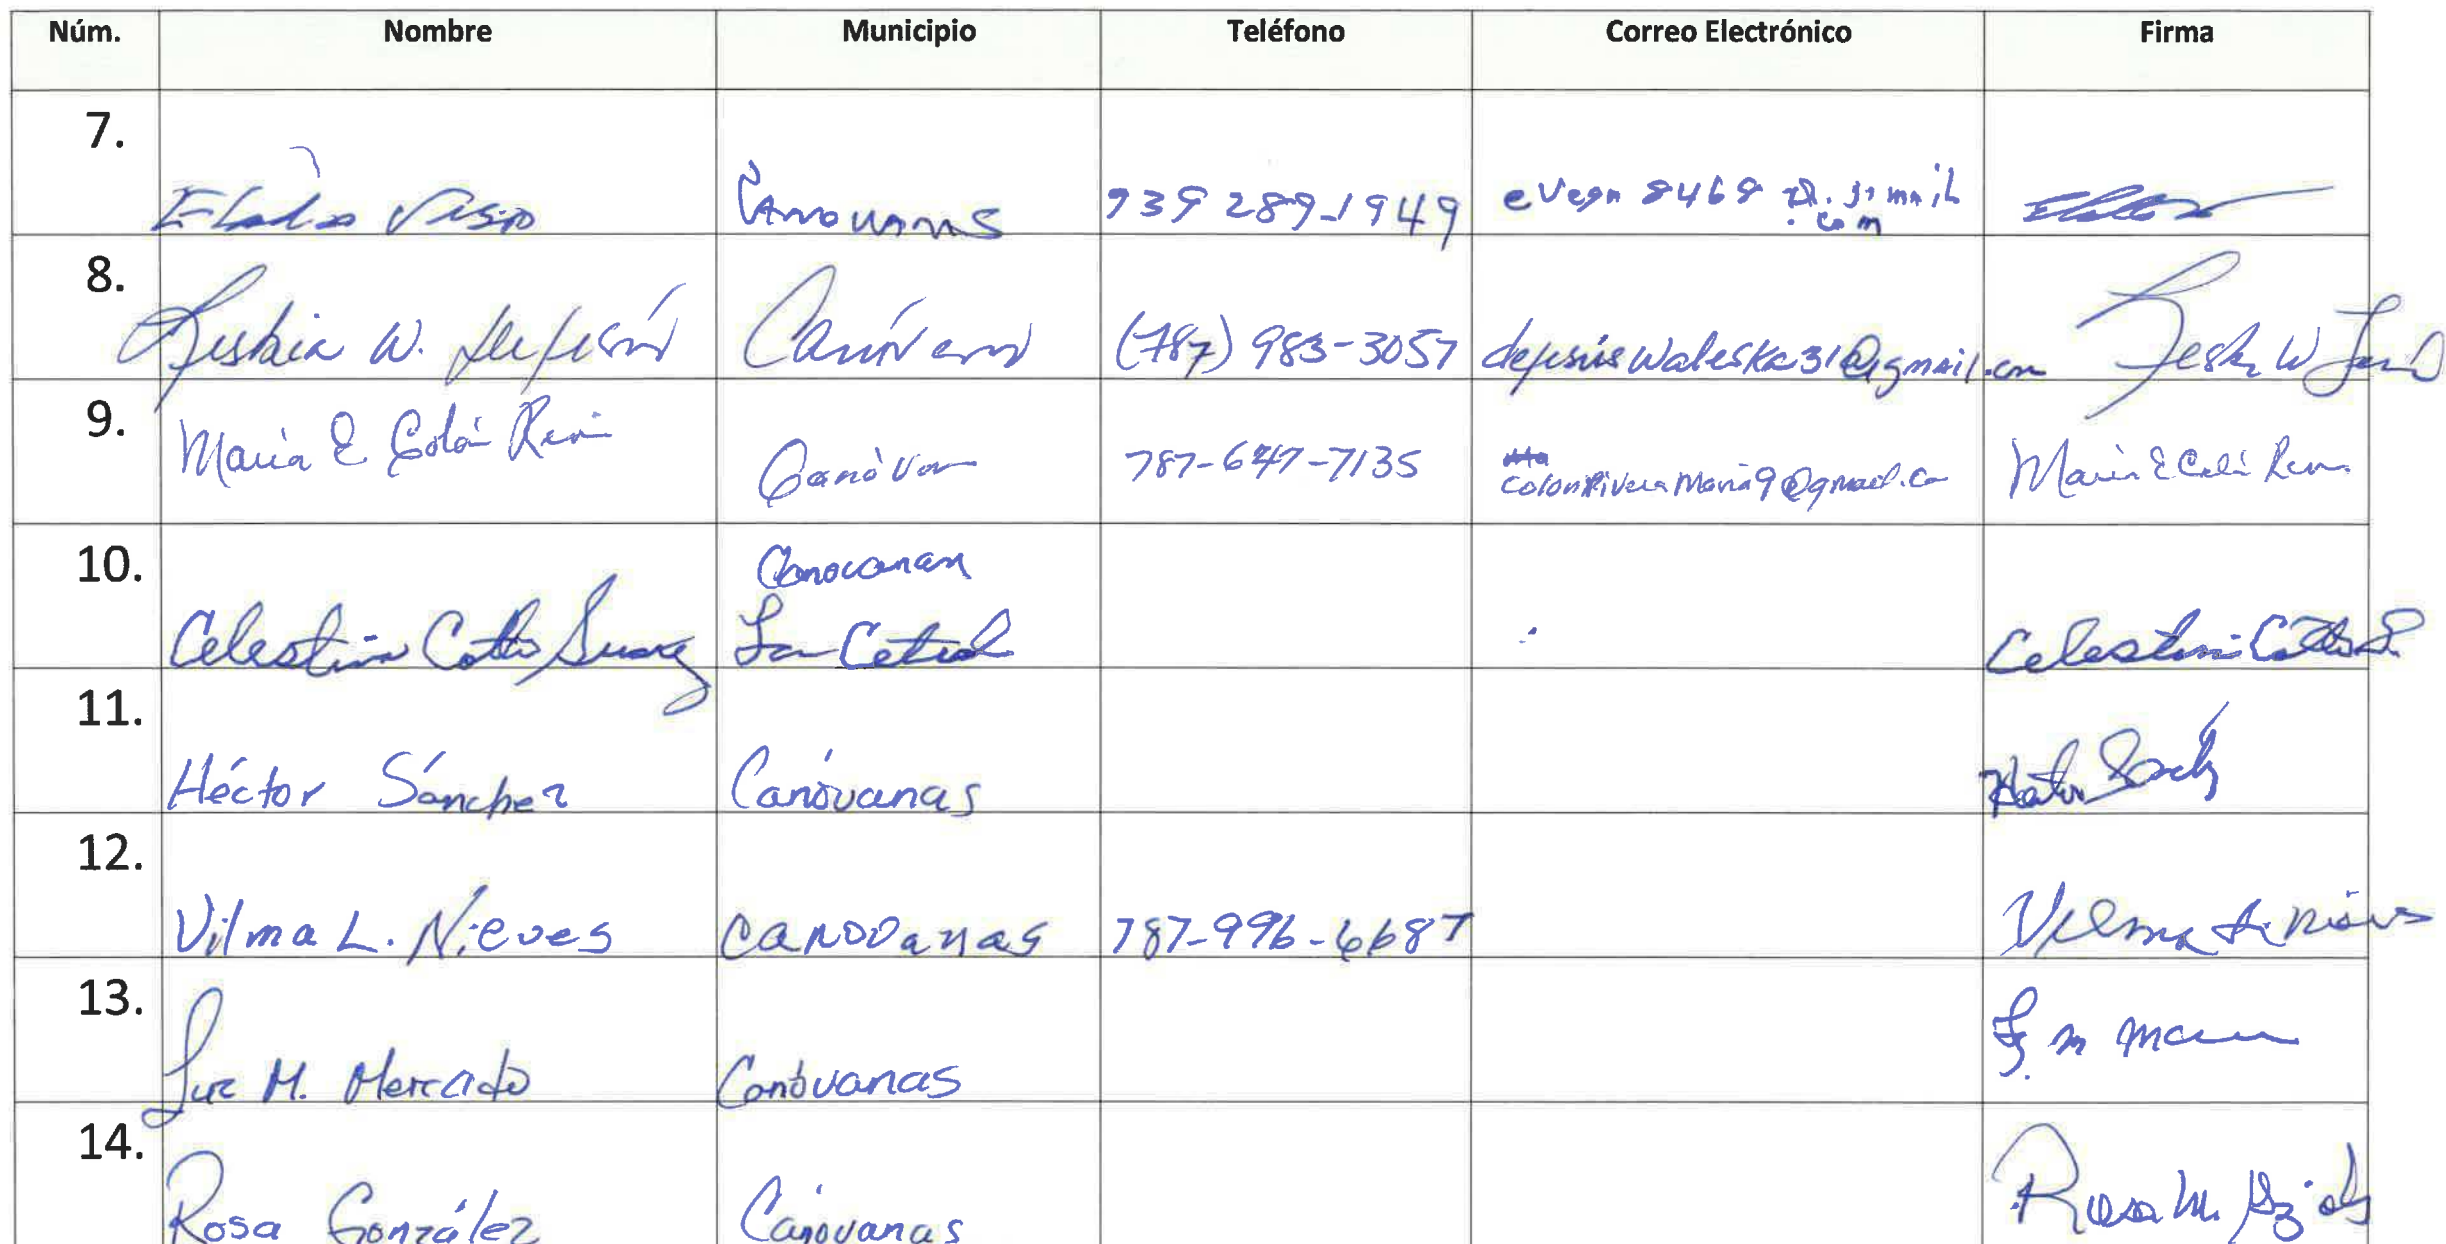 Núm. Nombre Municipio Teléfono Correo Electrónico Firma
7. Vega Canovanas 939 289-1949 evega8468
8. W. DeJesús Canóvanas (787) 983-3057 dejesuswaleska31@gmail.com
9. Maria E Colón Rivera Canóvanas 787-647-7135 ColonRiveraMaria9@gmail.co Maria E Colón
10. Canovanas
Celestina Cotto Suarez La Central Celestina Cotto S.
11. Héctor Sánchez Canóvanas
12. Vilma L. Nieves CANOVanas 787-996-6687 Vilma L. Nieves
13. Luz M. Mercado Canóvanas
14. Rosa González Canóvanas Rosa M.